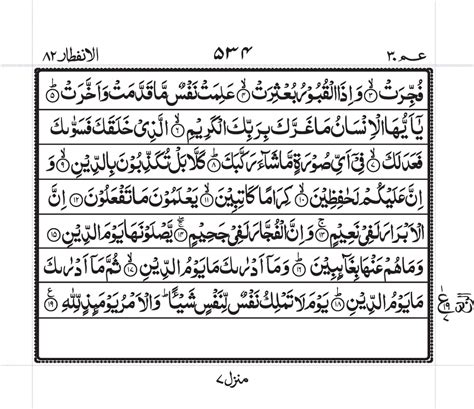 عم ۳۰ ۵۳۴ الانفطار ۸۲
فُجِّرَتْ ۙ۝۳ وَاِذَا الْقُبُوْرُ بُعْثِرَتْ ۙ۝۴ عَلِمَتْ نَفْسٌ مَّا قَدَّمَتْ وَاَخَّرَتْ ؕ۝۵
یٰۤاَیُّهَا الْاِنْسَانُ مَا غَرَّكَ بِرَبِّكَ الْكَرِیْمِ ۙ۝۶ الَّذِیْ خَلَقَكَ فَسَوّٰىكَ
فَعَدَلَكَ ۙ۝۷ فِیْۤ اَیِّ صُوْرَةٍ مَّا شَآءَ رَكَّبَكَ ؕ۝۸ كَلَّا بَلْ تُكَذِّبُوْنَ بِالدِّیْنِ ۙ۝۹ وَ
اِنَّ عَلَیْكُمْ لَحٰفِظِیْنَ ۙ۝۱۰ كِرَامًا كَاتِبِیْنَ ۙ۝۱۱ یَعْلَمُوْنَ مَا تَفْعَلُوْنَ ۝۱۲ اِنَّ
الْاَبْرَارَ لَفِیْ نَعِیْمٍ ۚ۝۱۳ وَاِنَّ الْفُجَّارَ لَفِیْ جَحِیْمٍ ۚۖ۝۱۴ یَّصْلَوْنَهَا یَوْمَ الدِّیْنِ ۝۱۵
وَمَا هُمْ عَنْهَا بِغَآىِٕبِیْنَ ؕ۝۱۶ وَمَاۤ اَدْرٰىكَ مَا یَوْمُ الدِّیْنِ ۙ۝۱۷ ثُمَّ مَاۤ اَدْرٰىكَ
مَا یَوْمُ الدِّیْنِ ؕ۝۱۸ یَوْمَ لَا تَمْلِكُ نَفْسٌ لِّنَفْسٍ شَیْـًٔا ؕ وَالْاَمْرُ یَوْمَىِٕذٍ لِّلّٰهِ ۠۝۱۹
منزل ۷